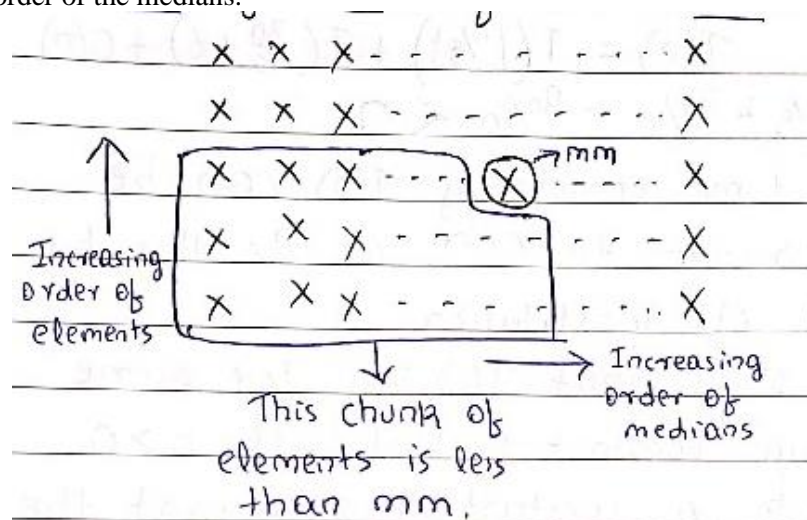 order of the medians.
X X X - - - - - - - - - - - X
X X X - - - - - - - - - - - X
X X X - - - - X → mm - - - - X
X X X - - - - - - - - - - - X
X X X - - - - - - - - - - - X
Increasing
order of
elements
Increasing
order of
medians
This chunk of
elements is less
than mm.